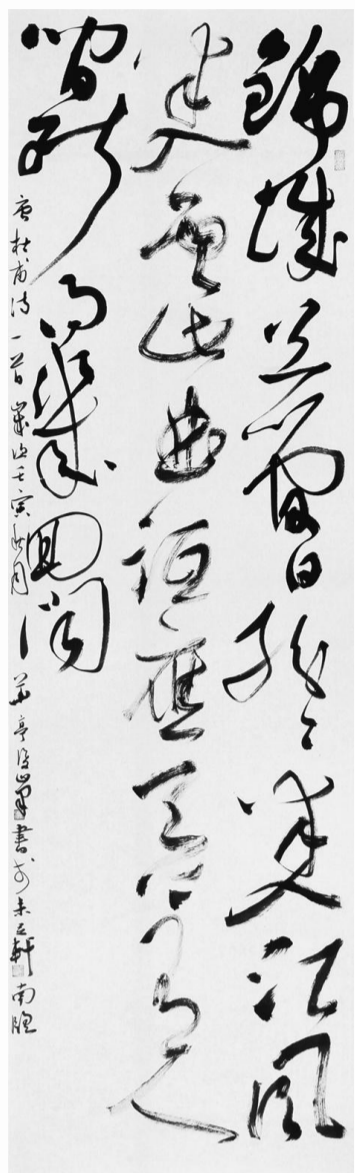 錦城絲管日紛々半入江風
半入雲此曲祇應天上有人
間能得幾回聞
唐杜甫詩一首歲次壬寅秋月華亭書於軒南牕